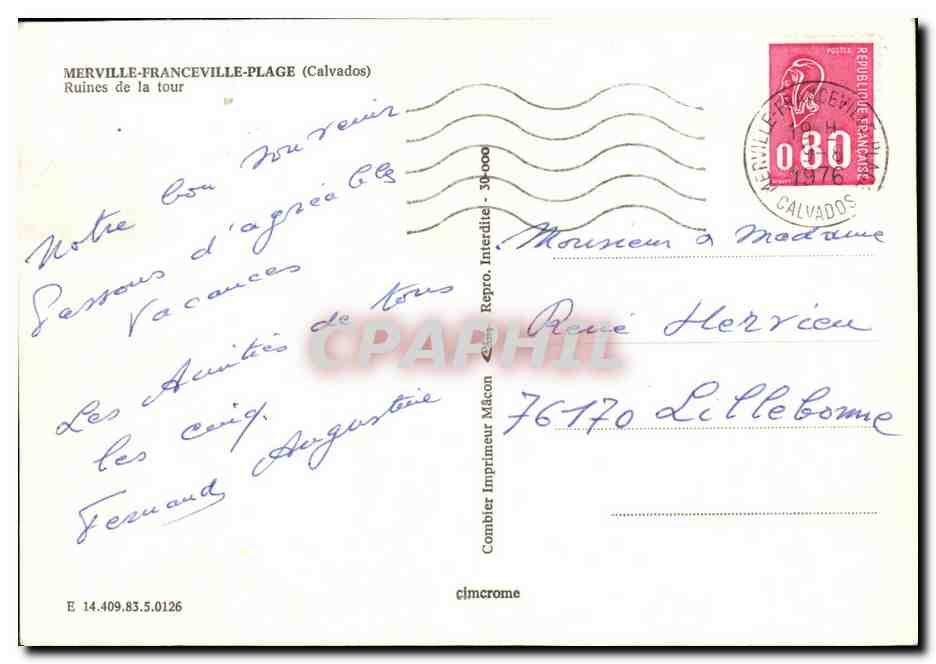 MERVILLE-FRANCEVILLE-PLAGE (Calvados)
Ruines de la tour
Notre bon souvenir
Passons d'agréables
Vacances
Les Amitiés de tous
les cinq.
Fernand Augustine
E 14.409.83.5.0126
Combier Imprimeur Mâcon Cim Repro. Interdite - 30-000
cimcrome
CPAPHIL
POSTES
REPUBLIQUE FRANÇAISE
0.80
MERVILLE-FRANCEVILLE-PLAGE
19 H
1976
CALVADOS
Monsieur & Madame
René Hervieu
76170 Lillebonne